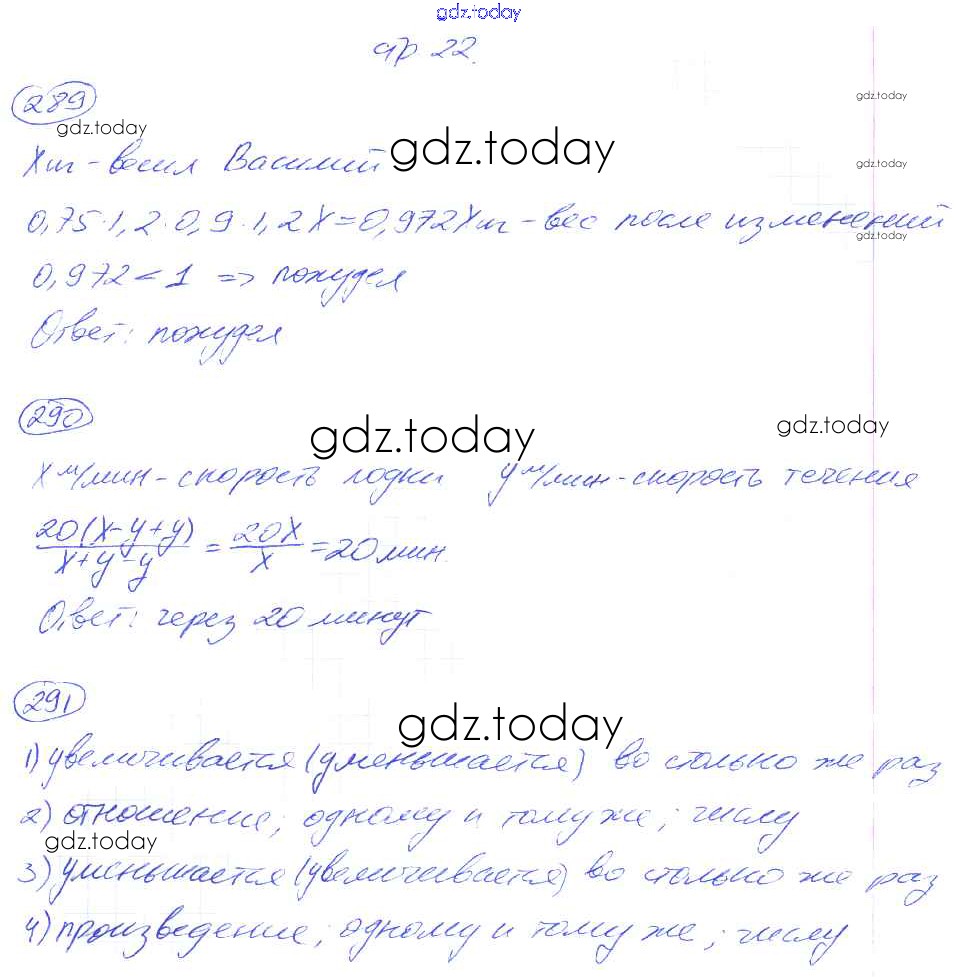 gdz.today
стр 22.
gdz.today
289
gdz.today
X кг - весил Василий
gdz.today
gdz.today
0,75·1,2·0,9·1,2X=0,972X кг - вес после изменений
gdz.today
0,972<1 => похудел
Ответ: похудел
290
gdz.today
gdz.today
X м/мин - скорость лодки y м/мин - скорость течения
20(x-y+y)/x+y-y = 20x/x = 20 мин.
Ответ: через 20 минут
291
gdz.today
1) увеличивается (уменьшается) во столько же раз
2) отношение; одному и тому же; числу
gdz.today
3) уменьшается (увеличивается) во столько же раз
4) произведение; одному и тому же; числу